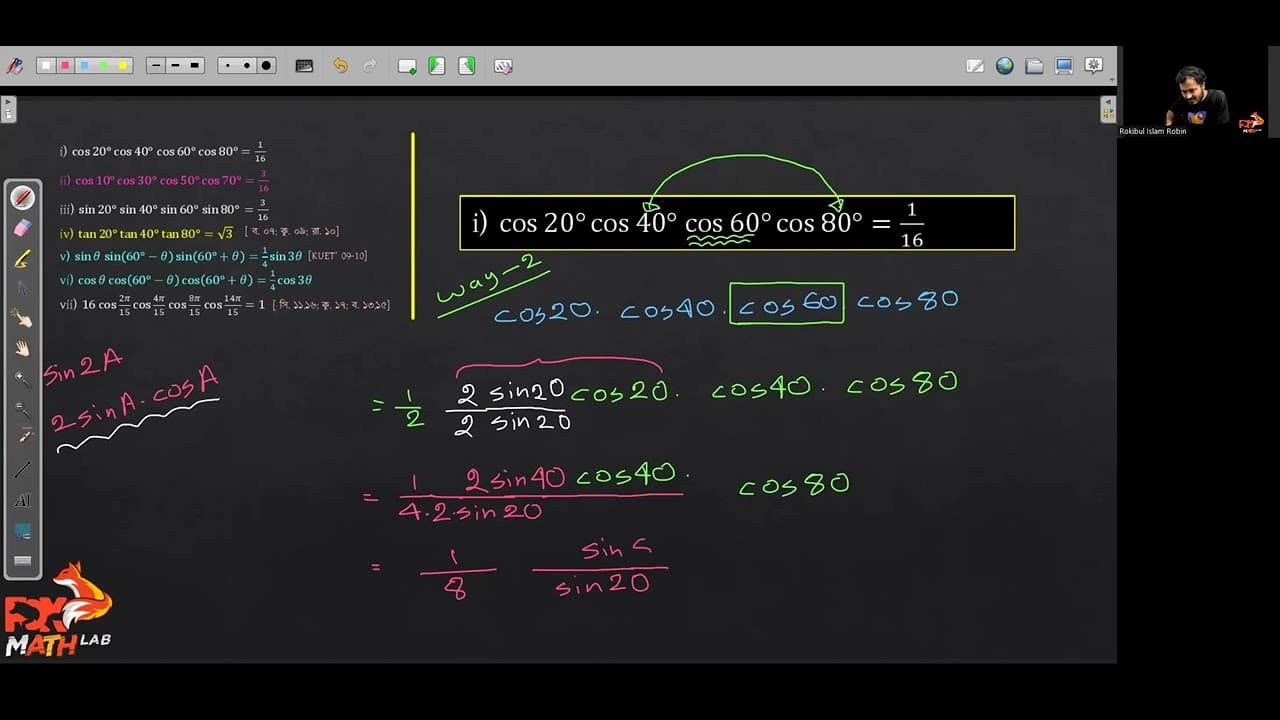 Rokibul Islam Robin
i) cos 20° cos 40° cos 60° cos 80° = 1/16
ii) cos 10° cos 30° cos 50° cos 70° = 3/16
iii) sin 20° sin 40° sin 60° sin 80° = 3/16
iv) tan 20° tan 40° tan 80° = √3 [ ব. ০৭; কু. ০৯; রা. ১০]
v) sin θ sin(60° − θ) sin(60° + θ) = 1/4 sin 3θ [KUET' 09-10]
vi) cos θ cos(60° − θ) cos(60° + θ) = 1/4 cos 3θ
vii) 16 cos 2π/15 cos 4π/15 cos 8π/15 cos 14π/15 = 1
sin2A
2 sinA. cosA
i) cos 20° cos 40° cos 60° cos 80° = 1/16
way-2
cos20. cos40. cos60 cos80
= 1/2 2 sin20/2 sin20 cos20. cos40. cos80
= 1 2 sin40 cos40./4.2.sin20 cos80
= 1/8 sin /sin20
AI
MATH LAB